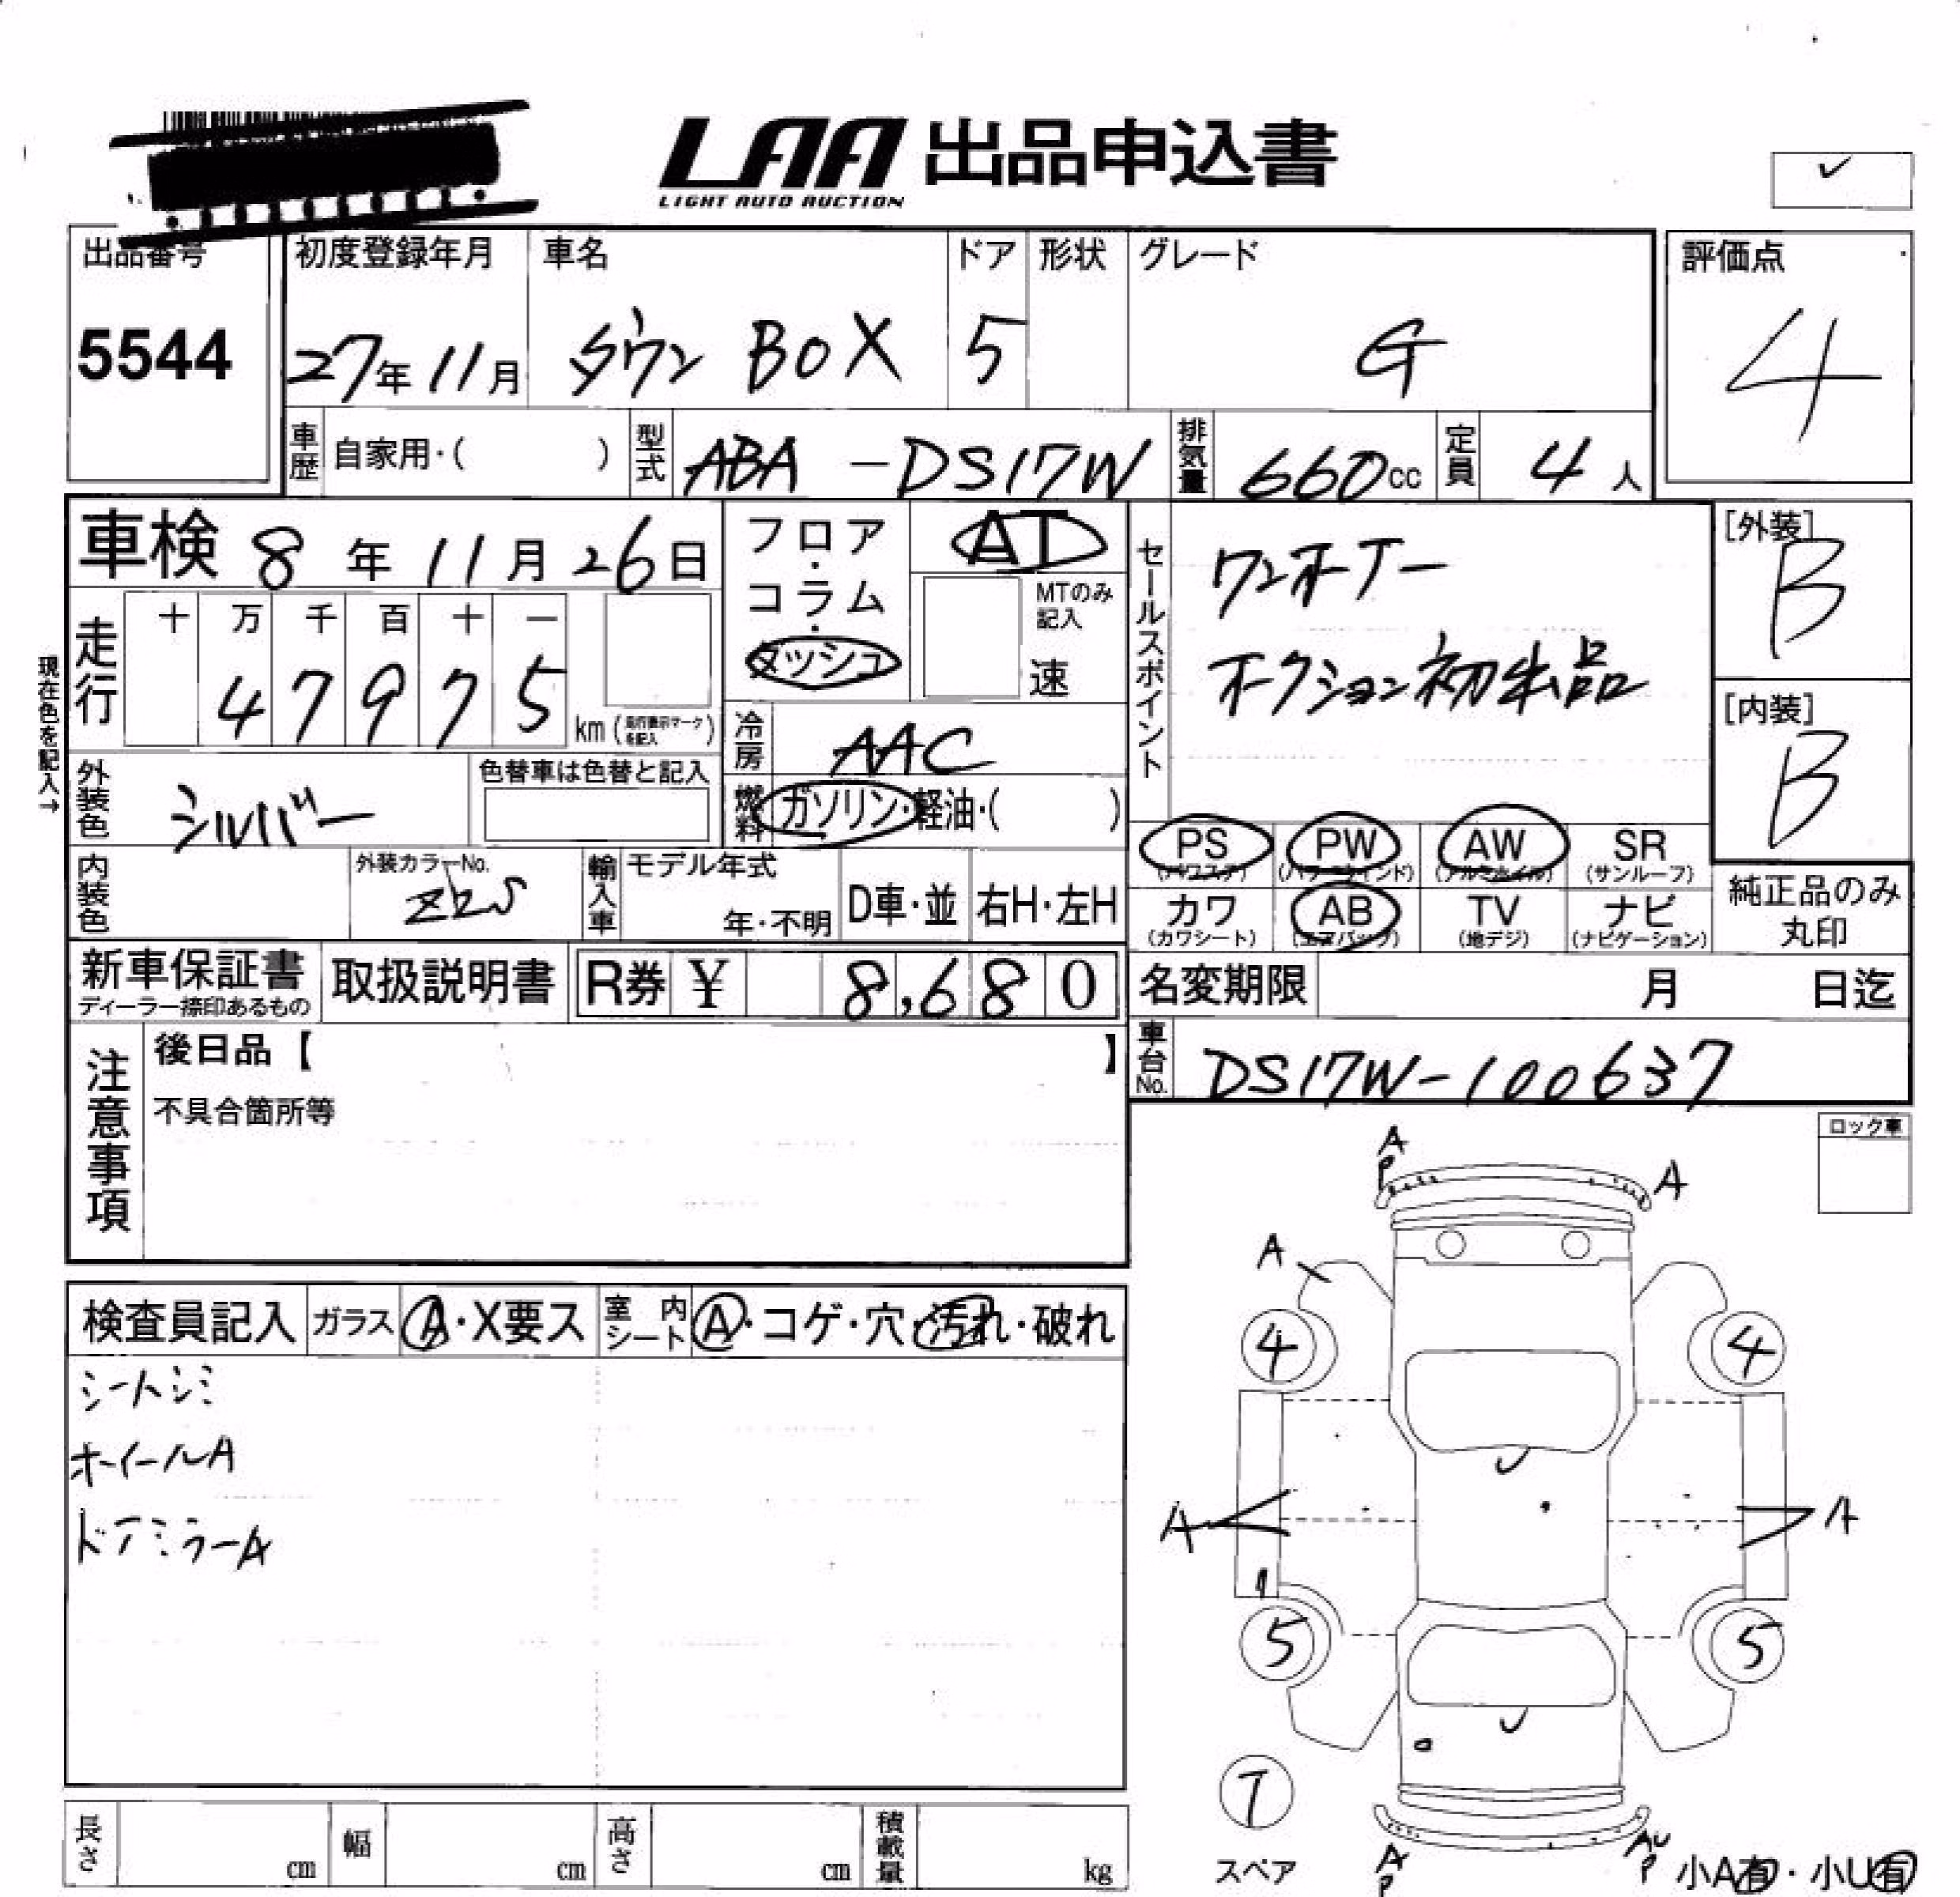 LAA 出品申込書
LIGHT AUTO AUCTION
出品番号
5544
初度登録年月 車名 ドア 形状 グレード
27年11月 タウン BOX 5 G
評価点
4
車歴 自家用・( ) 型式 ABA -DS17W 排気量 660cc 定員 4人
車検 8年11月26日
フロア・コラム・ダッシュ
AT
MTのみ記入
速
セールスポイント
ワンオーナー
オークション初出品
[外装]
B
[内装]
B
現在色を記入→
走行 十 万 千 百 十 一
47975 km (走行表示マークを記入)
冷房 AAC
外装色 シルバー 色替車は色替と記入
燃料 ガソリン・軽油・( )
PS (パワステ) PW (パワーウィンド) AW (アルミホイル) SR (サンルーフ)
カワ (カワシート) AB (エアバッグ) TV (地デジ) ナビ (ナビゲーション)
純正品のみ丸印
内装色 外装カラーNo. Z2S 輸入車 モデル年式 年・不明 D車・並 右H・左H
新車保証書 ディーラー捺印あるもの 取扱説明書 R券 ¥ 8,680
名変期限 月 日迄
車台No. DS17W-100637
注意事項
後日品【 】
不具合箇所等
ロック車
検査員記入 ガラス A・X要ス 室内シート A・コゲ・穴・汚れ・破れ
シートシミ
ホイールA
ドアミラーA
A
P
A
A
4 4
A A
5 5
T
スペア
A
P
AU
P
小A有・小U有
長さ cm 幅 cm 高さ cm 積載量 kg